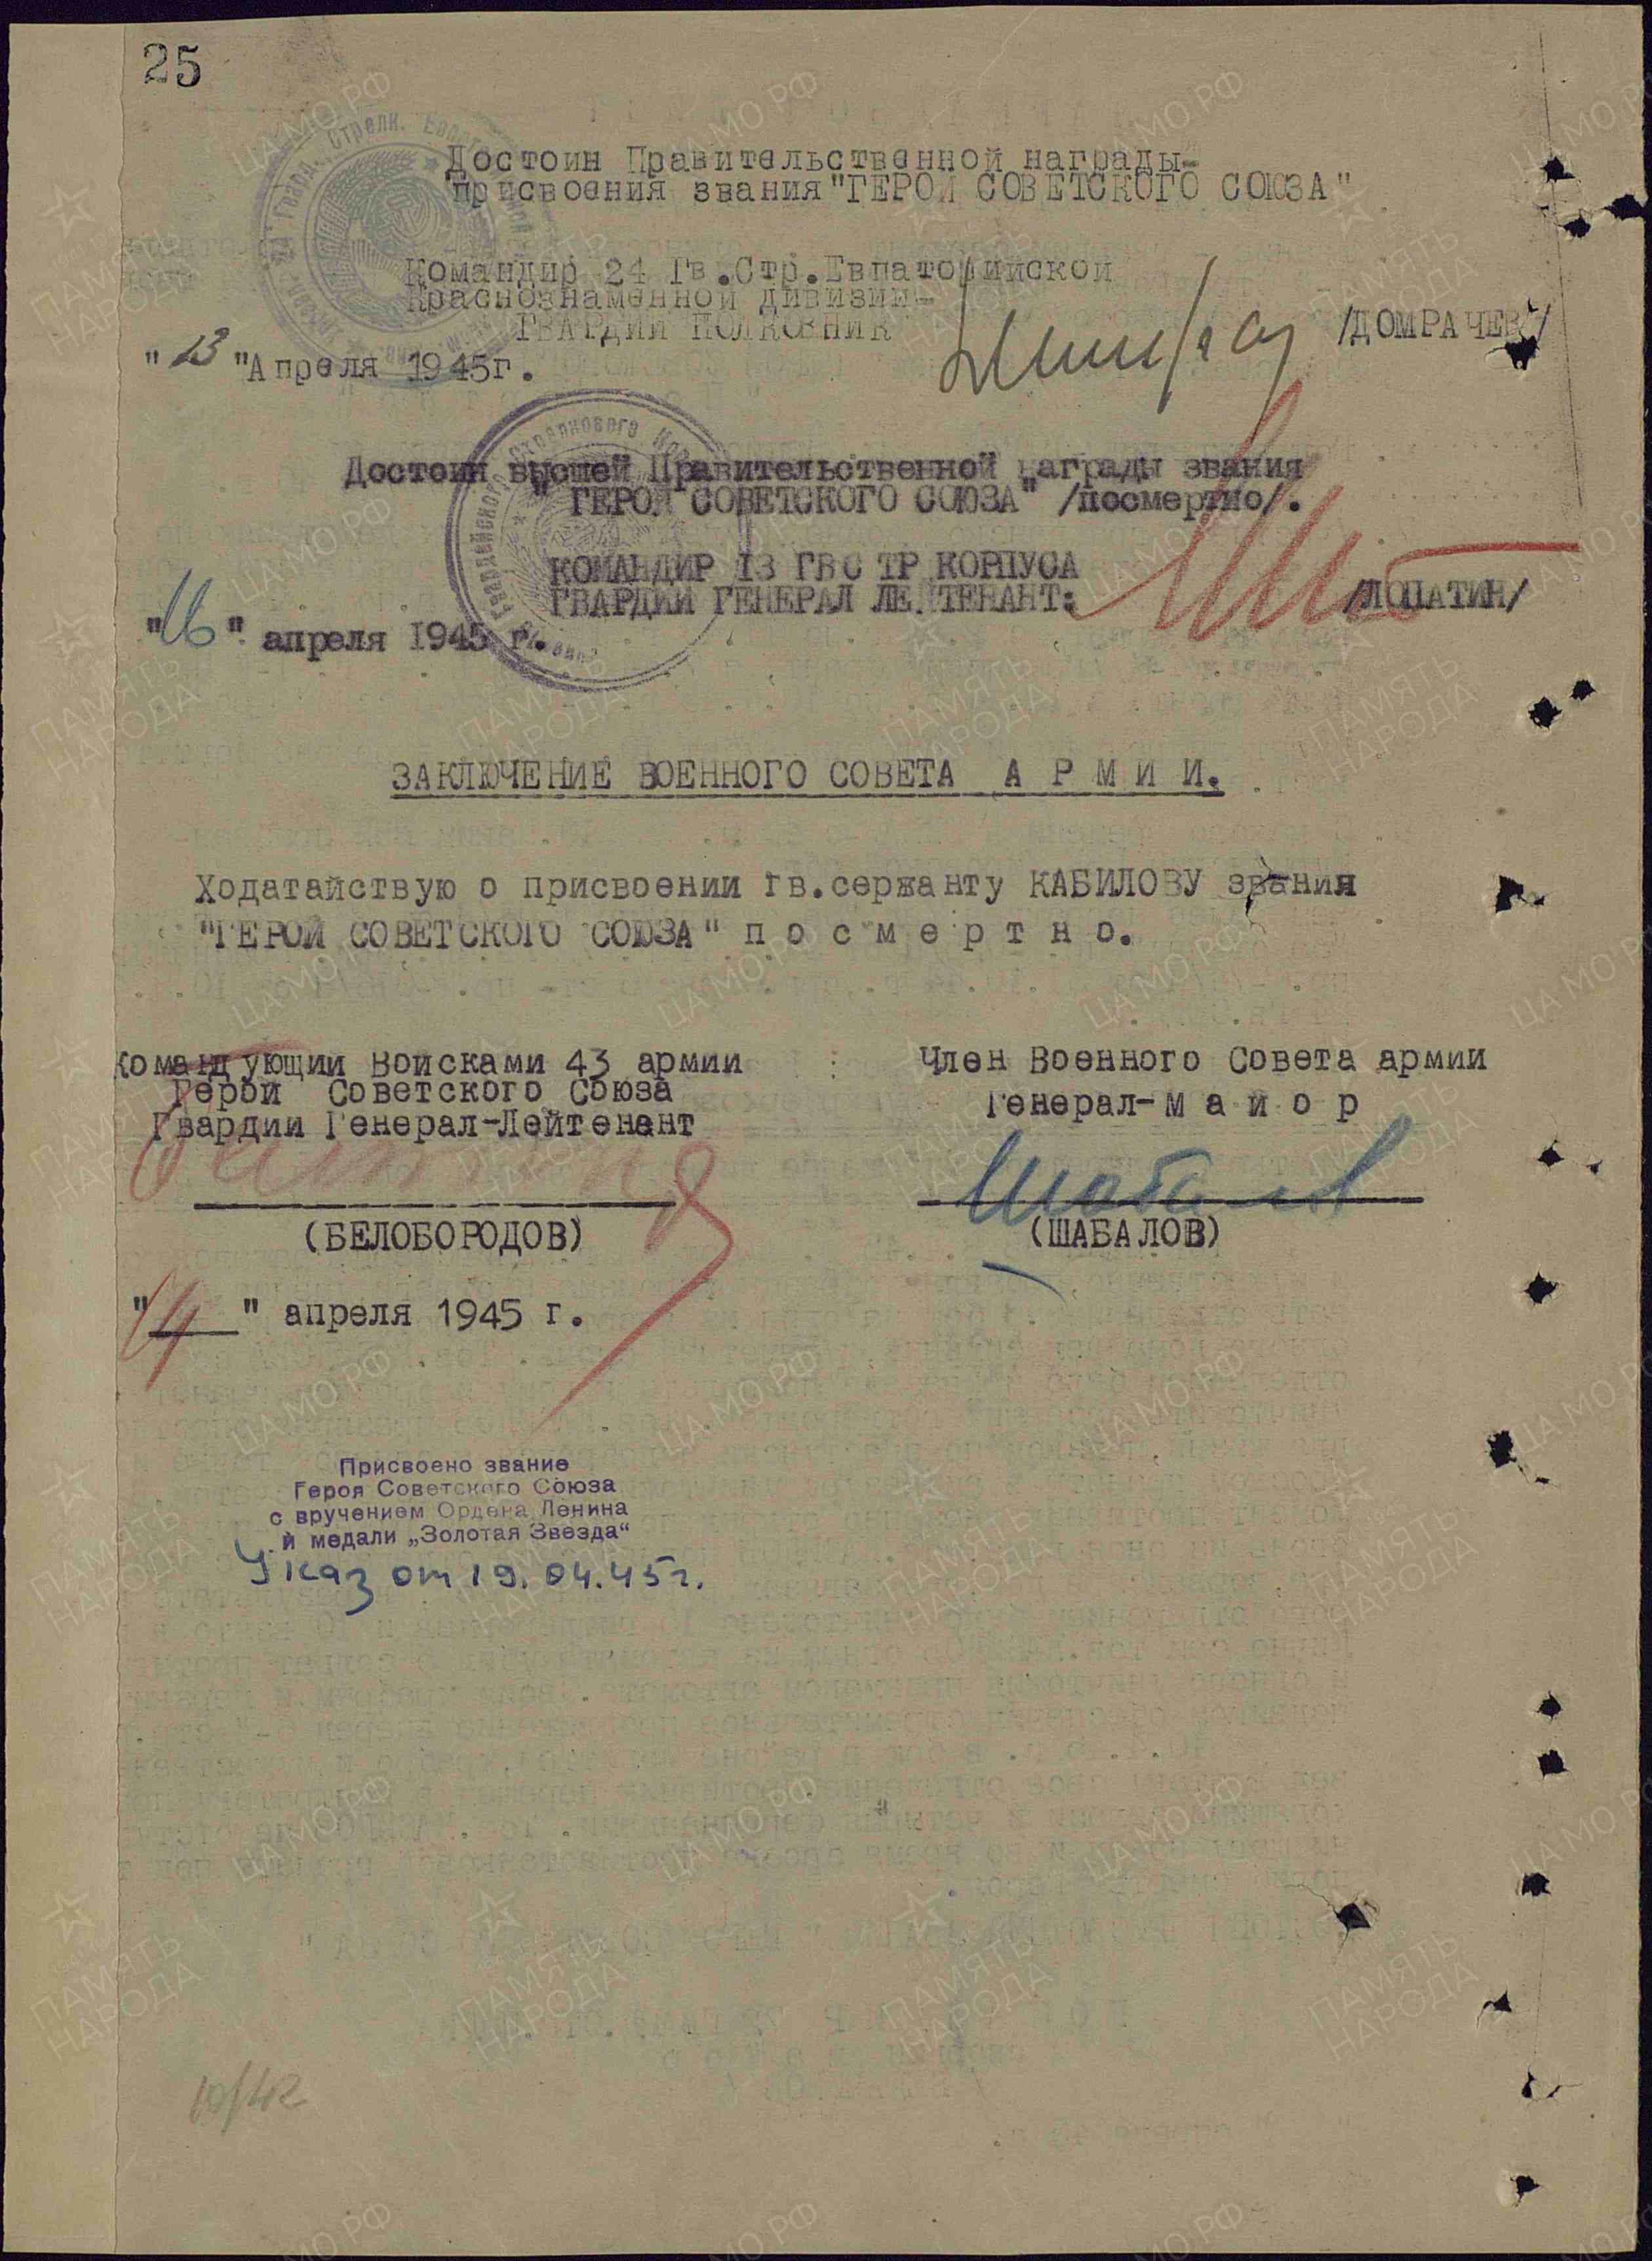 25
Достоин Правительственной награды-
присвоения звания "ГЕРОЙ СОВЕТСКОГО СОЮЗА"
Командир 24 Гв.Стр.Евпаторийской
Краснознаменной дивизии-
ГВАРДИИ ПОЛКОВНИК
/ДОМРАЧЕВ/
"13"Апреля 1945г.
Достоин высшей Правительственной награды звания
" ГЕРОЯ СОВЕТСКОГО СОЮЗА" /посмертно/.
КОМАНДИР I3 ГВ С ТР КОРПУСА
ГВАРДИИ ГЕНЕРАЛ ЛЕЙТЕНАНТ:
/ЛОПАТИН/
"16" апреля I945 г.
ЗАКЛЮЧЕНИЕ ВОЕННОГО СОВЕТА А Р М И И.
Ходатайствую о присвоении гв.сержанту КАБИЛОВУ звания
"ГЕРОЙ СОВЕТСКОГО СОЮЗА" п о с м е р т н о.
Командующий Войсками 43 армии
Герой Советского Союза
Гвардии Генерал-Лейтенант
(БЕЛОБОРОДОВ)
Член Военного Совета армии
Генерал-м а й о р
Шабалов
(ШАБАЛОВ)
" " апреля 1945 г.
Присвоено звание
Героя Советского Союза
с вручением Ордена Ленина
и медали „Золотая Звезда“
Указ от 19.04.45г.
10/42
ПАМЯТЬ
НАРОДА
ЦА МО РФ